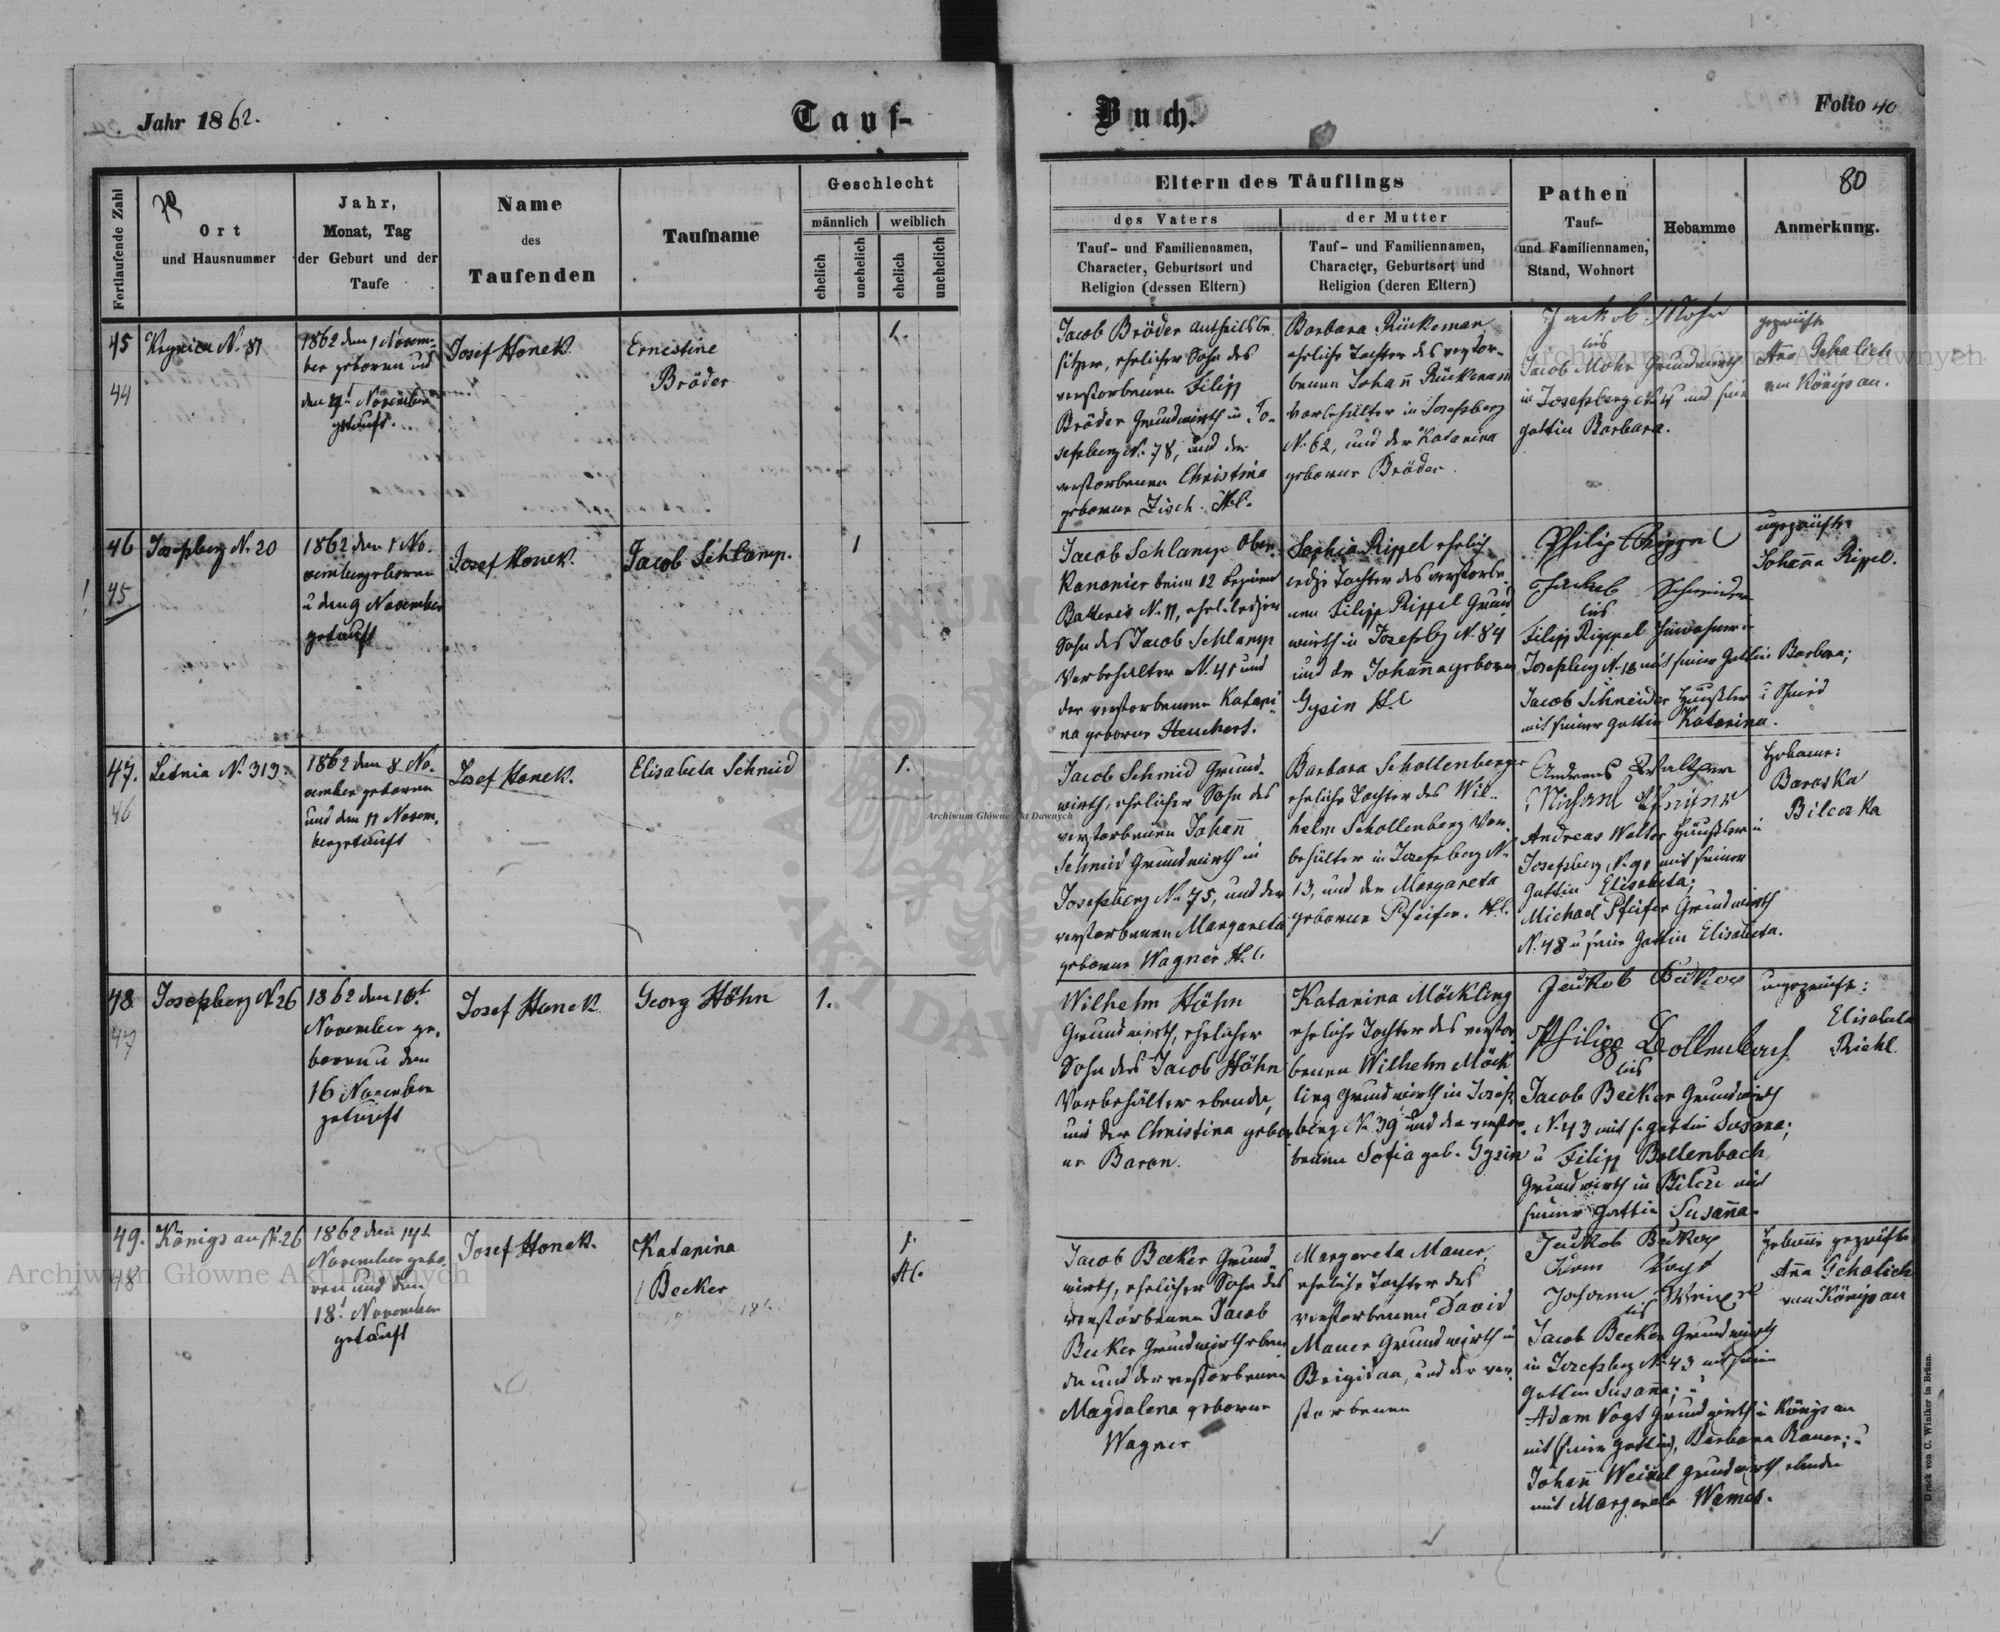 Jahr 1862.
Tauf-
Buch.
Folio 40
80
Fortlaufende Zahl
Ort
und Hausnummer
Jahr,
Monat, Tag
der Geburt und der
Taufe
Name
des
Taufenden
Taufname
Geschlecht
männlich
weiblich
ehelich
unehelich
ehelich
unehelich
Eltern des Täuflings
des Vaters
Tauf- und Familiennamen,
Character, Geburtsort und
Religion (dessen Eltern)
der Mutter
Tauf- und Familiennamen,
Character, Geburtsort und
Religion (deren Eltern)
Pathen
Tauf-
und Familiennamen,
Stand, Wohnort
Hebamme
Anmerkung.
45
44
Krynica N. 81
1862 den 1 Novem-
ber geboren und
den November
getauft.
Josef Honek.
Ernestine
Bröder
1.
Jacob Bröder Antheilsbe-
sitzer, ehelicher Sohn des
verstorbenen Filipp
Bröder Grundwirth in Jo-
sefsberg N. 78, und der
verstorbenen Christina
geborne Zisch. H.C.
Barbara Rückeman
eheliche Tochter des verstor-
benen Johann Rückeman
Vorbehälter in Josefsberg
N. 62, und der Katarina
geborne Bröder.
Jackob Mohr
Jacob Mohr Grundwirth
in Josefsberg N. 4 und seine
Gattin Barbara.
geprüft
Ana Gehalich
von Königsau.
46
45
Josefsberg N. 20
1862 den 1 No-
vember geboren
u den 9 November
getauft
Josef Honek.
Jacob Schlamp.
1
Jacob Schlamp Ober-
Kanonier beim 12
Batterie N. 11, ehel. lediger
Sohn des Jacob Schlamp
Vorbehälter N. 41 und
der verstorbenen Katari-
na geborne Heuchert.
Sophia Rippel ehelich
ledige Tochter des verstorbe-
nen Filipp Rippel Grund
wirth in Josefsbg N. 84
und der Johanna geborne
Gysin H.C
Philip Rippel
Jackob Schneider
Filipp Rippel Inwohner
Josefsberg N. 18 mit seiner Gattin Barbara;
Jacob Schneider Häusler u Schmid
mit seiner Gattin Katarina.
ungeprüft
Johanna Rippel.
47.
46
Letnia N. 313.
1862 den 8 No-
vember geboren
und den 11 Novem-
ber getauft
Josef Honek.
Elisabeta Schmid
1.
Jacob Schmid Grund-
wirth, ehelicher Sohn des
verstorbenen Johann
Schmid Grundwirth in
Josefsberg N. 75, und der
verstorbenen Margareta
geborne Wagner H.C.
Barbara Schollenberger
eheliche Tochter des Wil-
helm Schollenberg Vor-
behälter in Josefsberg N.
13, und der Margareta
geborne Pfeifer. H.C.
Andreas Walther
Michael Pfeifer
Andreas Walter Häusler in
Josefsberg, N. 91 mit seiner
Gattin Elisabeta;
Michael Pfeifer Grundwirth
N. 48 u seine Gattin Elisabeta.
Hebame:
Baraska
Bilecka
48
47
Josefsberg N. 26
1862 den 10t
November ge-
boren u den
16 November
getauft
Josef Honek
Georg Höhn
1.
Wilhelm Höhn
Grundwirth, ehelicher
Sohn des Jacob Höhn
Vorbehälter ebenda,
und der Christina gebor-
ne Baron.
Katarina Möckling
eheliche Tochter des verstor-
benen Wilhelm Möck
ling Grundwirth in Josefs-
berg N. 39 und der verstor-
benen Sofia geb. Gysin
Jackob Becker
Philipp Bollenbach
Jacob Becker Grundwirth
N. 43 mit s. Gattin Susana;
u Filipp Bollenbach
Grundwirth in Bilcze mit
seiner Gattin Susanna.
ungeprüft:
Elisabeta
Riehl.
49.
48
Königsau N. 26
1862 den 14t
November gebo-
ren und den
18t November
getauft
Josef Honek.
Katarina
Becker
1.
H.C.
Jacob Becker Grund-
wirth, ehelicher Sohn des
verstorbenen Jacob
Becker Grundwirth eben-
da und der verstorbenen
Magdalena geborne
Wagner
Margareta Mauer,
eheliche Tochter des
verstorbenen David
Mauer Grundwirth in
Brigidau, und der ver-
storbenen
Jackob Becker
Johann
Jacob Becker Grundwirth
in Josefsberg N. 43 mit seine
Gattin Susanna; u
Adam Vogt Grundwirth in Königsau
mit seine Gattin, Barbara Bauer; u
Johann Weinel Grundwirth ebenda
mit Margareta
Hebame geprüft
Anna Gehalich
von Königsau
Druck von C. Winiker in Brünn.
Archiwum Główne Akt Dawnych
Archiwum Główne Akt Dawnych
Archiwum Główne Akt Dawnych
ARCHIWUM
AKT DAWNYCH